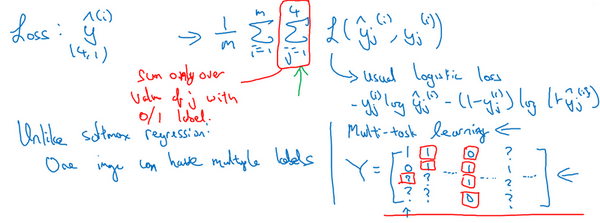 Loss: ŷ^(i) → 1/m Σ_{i=1}^{m} Σ_{j=1}^{4} L(ŷ_j^(i), y_j^(i))
(4,1)
sum only over
value of j with
0/1 label.
↳ usual logistic loss
- y_j^(i) log ŷ_j^(i) - (1-y_j^(i)) log (1-ŷ_j^(i))
Unlike softmax regression:
One image can have multiple labels
Multi-task learning ←
Y = [
1 1 0 ?
0 1 1 1
? ? ... 1 ... ?
? ? 0 ?
] ←